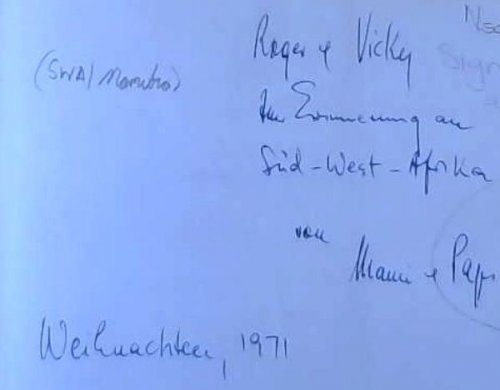 Roger & Vicky
(SWA/Namibia)
zur Erinnerung an
Süd-West-Afrika
von
Mami & Papi
Weihnachten, 1971